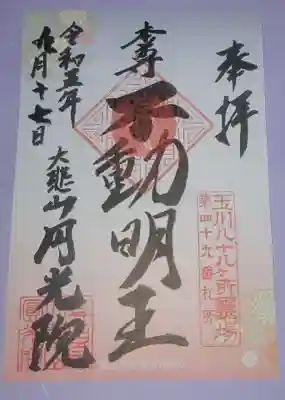 奉拝
玉川八十八ヶ所霊場
第四十九番札所
本尊
不動明王
令和五年
九月十七日
大悲山円光院